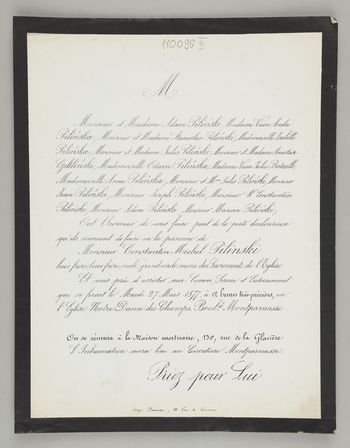 110096 III
M
Monsieur et Madame Adam Pilinski, Madame Veuve
Pilinska, Monsieur et Madame Stanislas Pilinski, Mademoiselle
Pilinska, Monsieur et Madame Jules Pilinski, Monsieur et Madame
Mademoiselle Pilinska, Madame Veuve Julie
Mademoiselle Anna Pilinska, Monsieur et Mme Jules Pilinski, Monsieur
Jean Pilinski, Monsieur Joseph Pilinski, Monsieur Constantin
Pilinski, Monsieur Adam Pilinski, Monsieur Marian Pilinski,
Ont l'honneur de vous faire part de la perte douloureuse
qu'ils viennent de faire en la personne de
Monsieur Constantin Michel Pilinski
leur frère, beau frère, oncle, grand oncle, muni des Sacrements de l'Eglise
Et vous prie d'assister aux Convoi Service et Enterrement
qui se feront le Mardi 27 Mars 1877, à heures très précises, en
l'Eglise Notre Dame des Champs, Boult Montparnasse.
On se réunira à la Maison mortuaire, 130, rue de la Glacière
L'Inhumation aura lieu au Cimetière Montparnasse.
Priez pour Lui